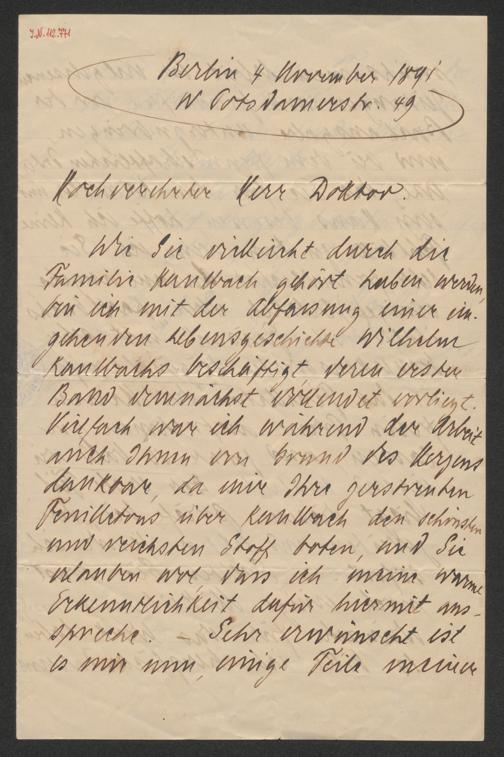 J.N. 112.771
Berlin 4 November 1891
W Potsdamerstr. 49
Hochverehrter Herr Doktor.
Wie Sie vielleicht durch die
Familie Kaulbach gehört haben werden,
bin ich mit der Abfassung einer ein-
gehenden Lebensgeschichte Wilhelm
Kaulbachs beschäftigt, deren erster
Band demnächst vollendet vorliegt.
Vielfach war ich während der Arbeit
auch Ihnen von Grund des Herzens
dankbar, da mir Ihre zerstreuten
Feuilletons über Kaulbach den schönsten
und reichsten Stoff boten, und Sie
erlauben wol, dass ich meine warme
Erkenntlichkeit dafür hiermit aus-
spreche. – Sehr erwünscht ist
es mir nun, einige Teile meiner